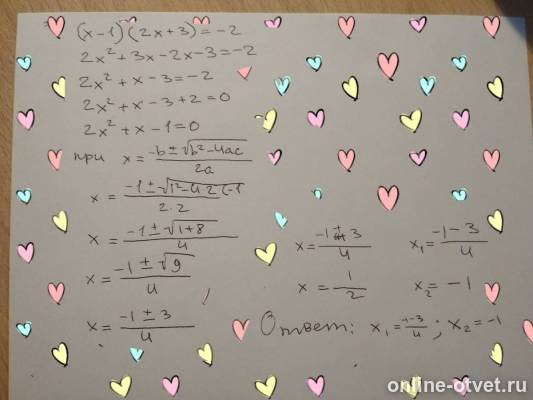 (x-1)(2x+3)=-2
2x²+3x-2x-3=-2
2x²+x-3=-2
2x²+x-3+2=0
2x²+x-1=0
при x = (-b±√(b²-4ac))/2a
x = (-1±√(1²-4·2·(-1)/2·2
x = (-1±√(1+8))/4
x = (-1±√9)/4
x = (-1±3)/4
x = (-1±3)/4
x = 1/2
x₁ = (-1-3)/4
x₂ = -1
Ответ: x₁ = (-1-3)/4 ; x₂ = -1
online-otvet.ru